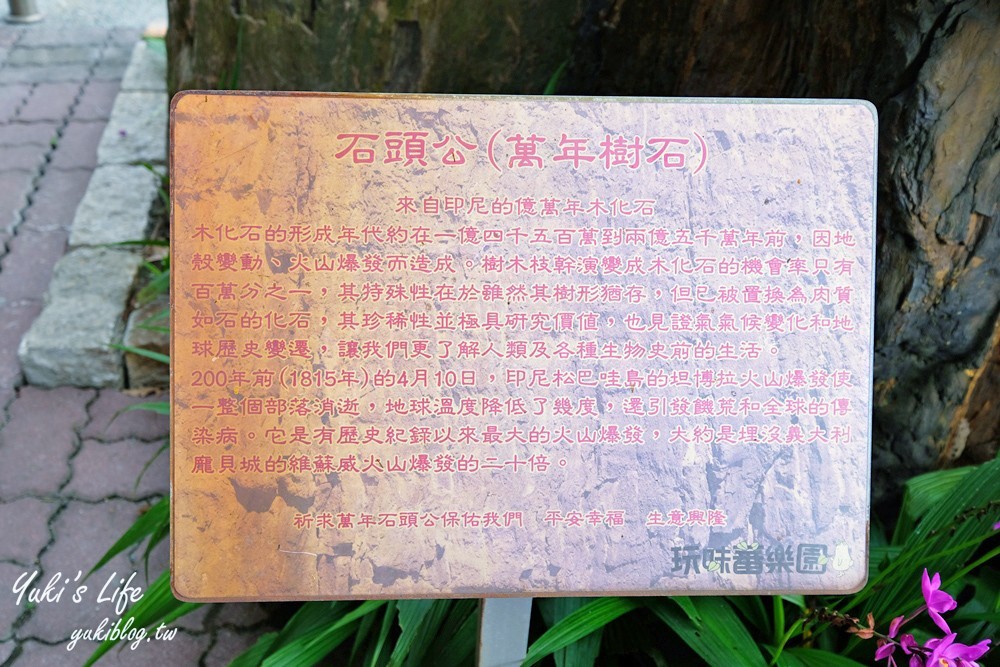 石頭公(萬年樹石)
來自印尼的億萬年木化石
木化石的形成年代約在一億四千五百萬到兩億五千萬年前，因地
殼變動、火山爆發而造成。樹木枝幹演變成木化石的機會率只有
百萬分之一，其特殊性在於雖然其樹形猶存，但已被置換為肉質
如石的化石，其珍稀性並極具研究價值，也見證氣氣候變化和地
球歷史變遷，讓我們更了解人類及各種生物史前的生活。
200年前(1815年)的4月10日，印尼松巴哇島的坦博拉火山爆發使
一整個部落消逝，地球溫度降低了幾度，還引發饑荒和全球的傳
染病。它是有歷史紀錄以來最大的火山爆發，大約是埋沒義大利
龐貝城的維蘇威火山爆發的二十倍。
祈求萬年石頭公保佑我們 平安幸福 生意興隆
玩味蕃樂園
Yuki's Life
yukiblog.tw